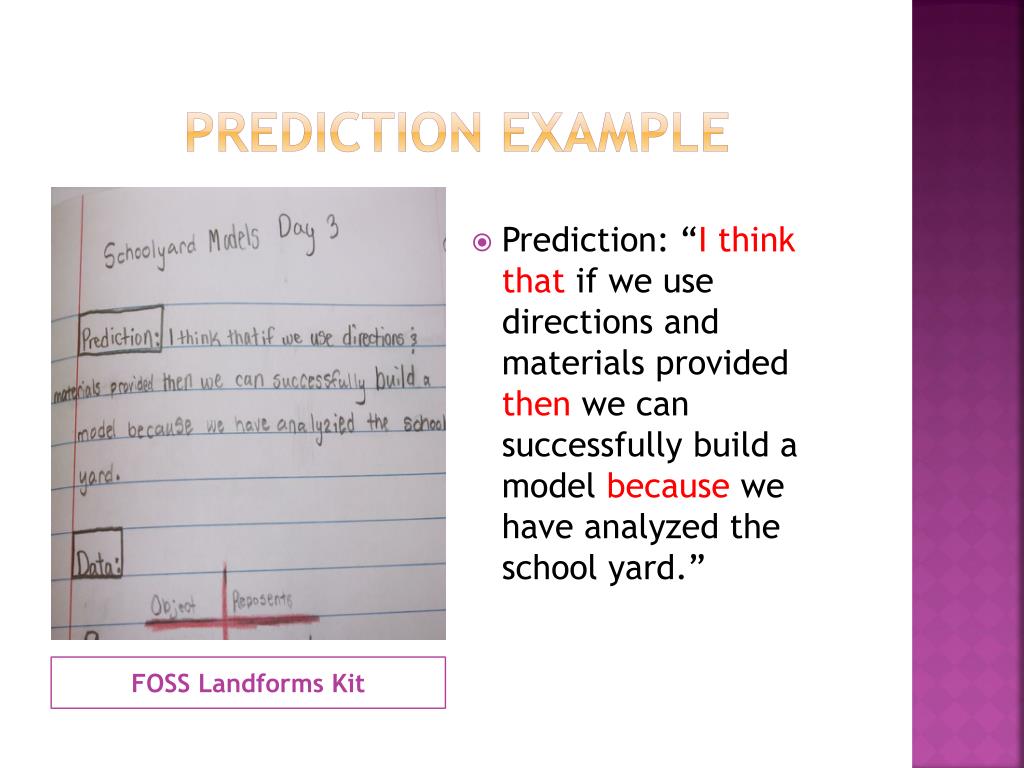 PREDICTION EXAMPLE
Schoolyard Models Day 3
Prediction: I think that if we use directions &
materials provided then we can successfully build a
model because we have analyzied the school
yard.
Data:
Object Reposents
FOSS Landforms Kit
Prediction: “I think
that if we use
directions and
materials provided
then we can
successfully build a
model because we
have analyzed the
school yard.”